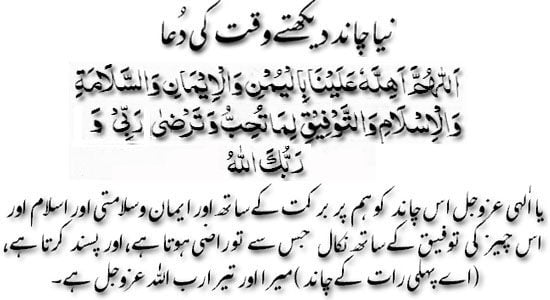 نیا چاند دیکھتے وقت کی دُعا
اَللّٰهُمَّ اَهِلَّهٗ عَلَيْنَا بِالْيُمْنِ وَالْاِيْمَانِ وَالسَّلَامَةِ
وَالْاِسْلَامِ وَالتَّوْفِيْقِ لِمَا تُحِبُّ وَتَرْضٰى رَبِّىْ وَ
رَبُّكَ اللّٰهُ
یا الٰہی عزوجل اس چاند کو ہم پر برکت کے ساتھ اور ایمان وسلامتی اور اسلام اور
اس چیز کی توفیق کے ساتھ نکال جس سے تو راضی ہوتا ہے، اور پسند کرتا ہے،
(اے پہلی رات کے چاند) میرا اور تیرا رب اللہ عزوجل ہے۔